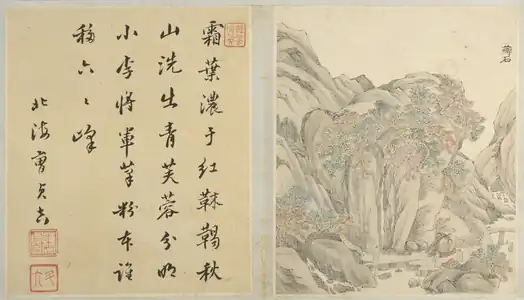 霜葉濃于紅靺鞨秋
山洗出青芙蓉分明
小李將軍粉本誰
移六〻峰
北海曹貞吉